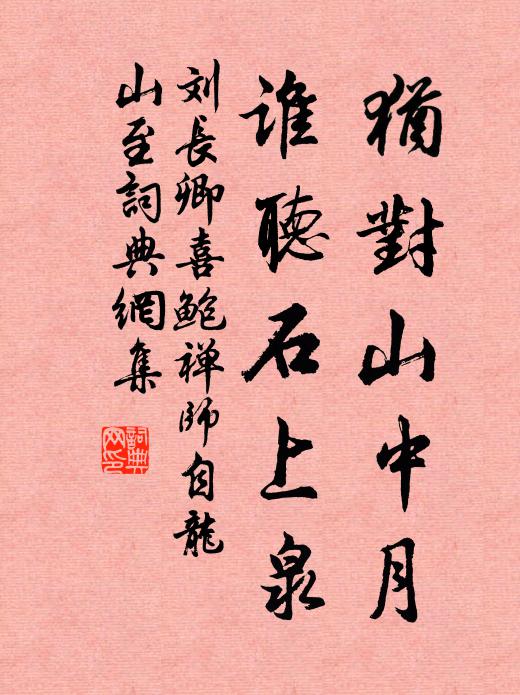 猶對山中月
誰聽石上泉
刘長卿喜鲍禅師自龍
山至詞典網集
詞典
网印